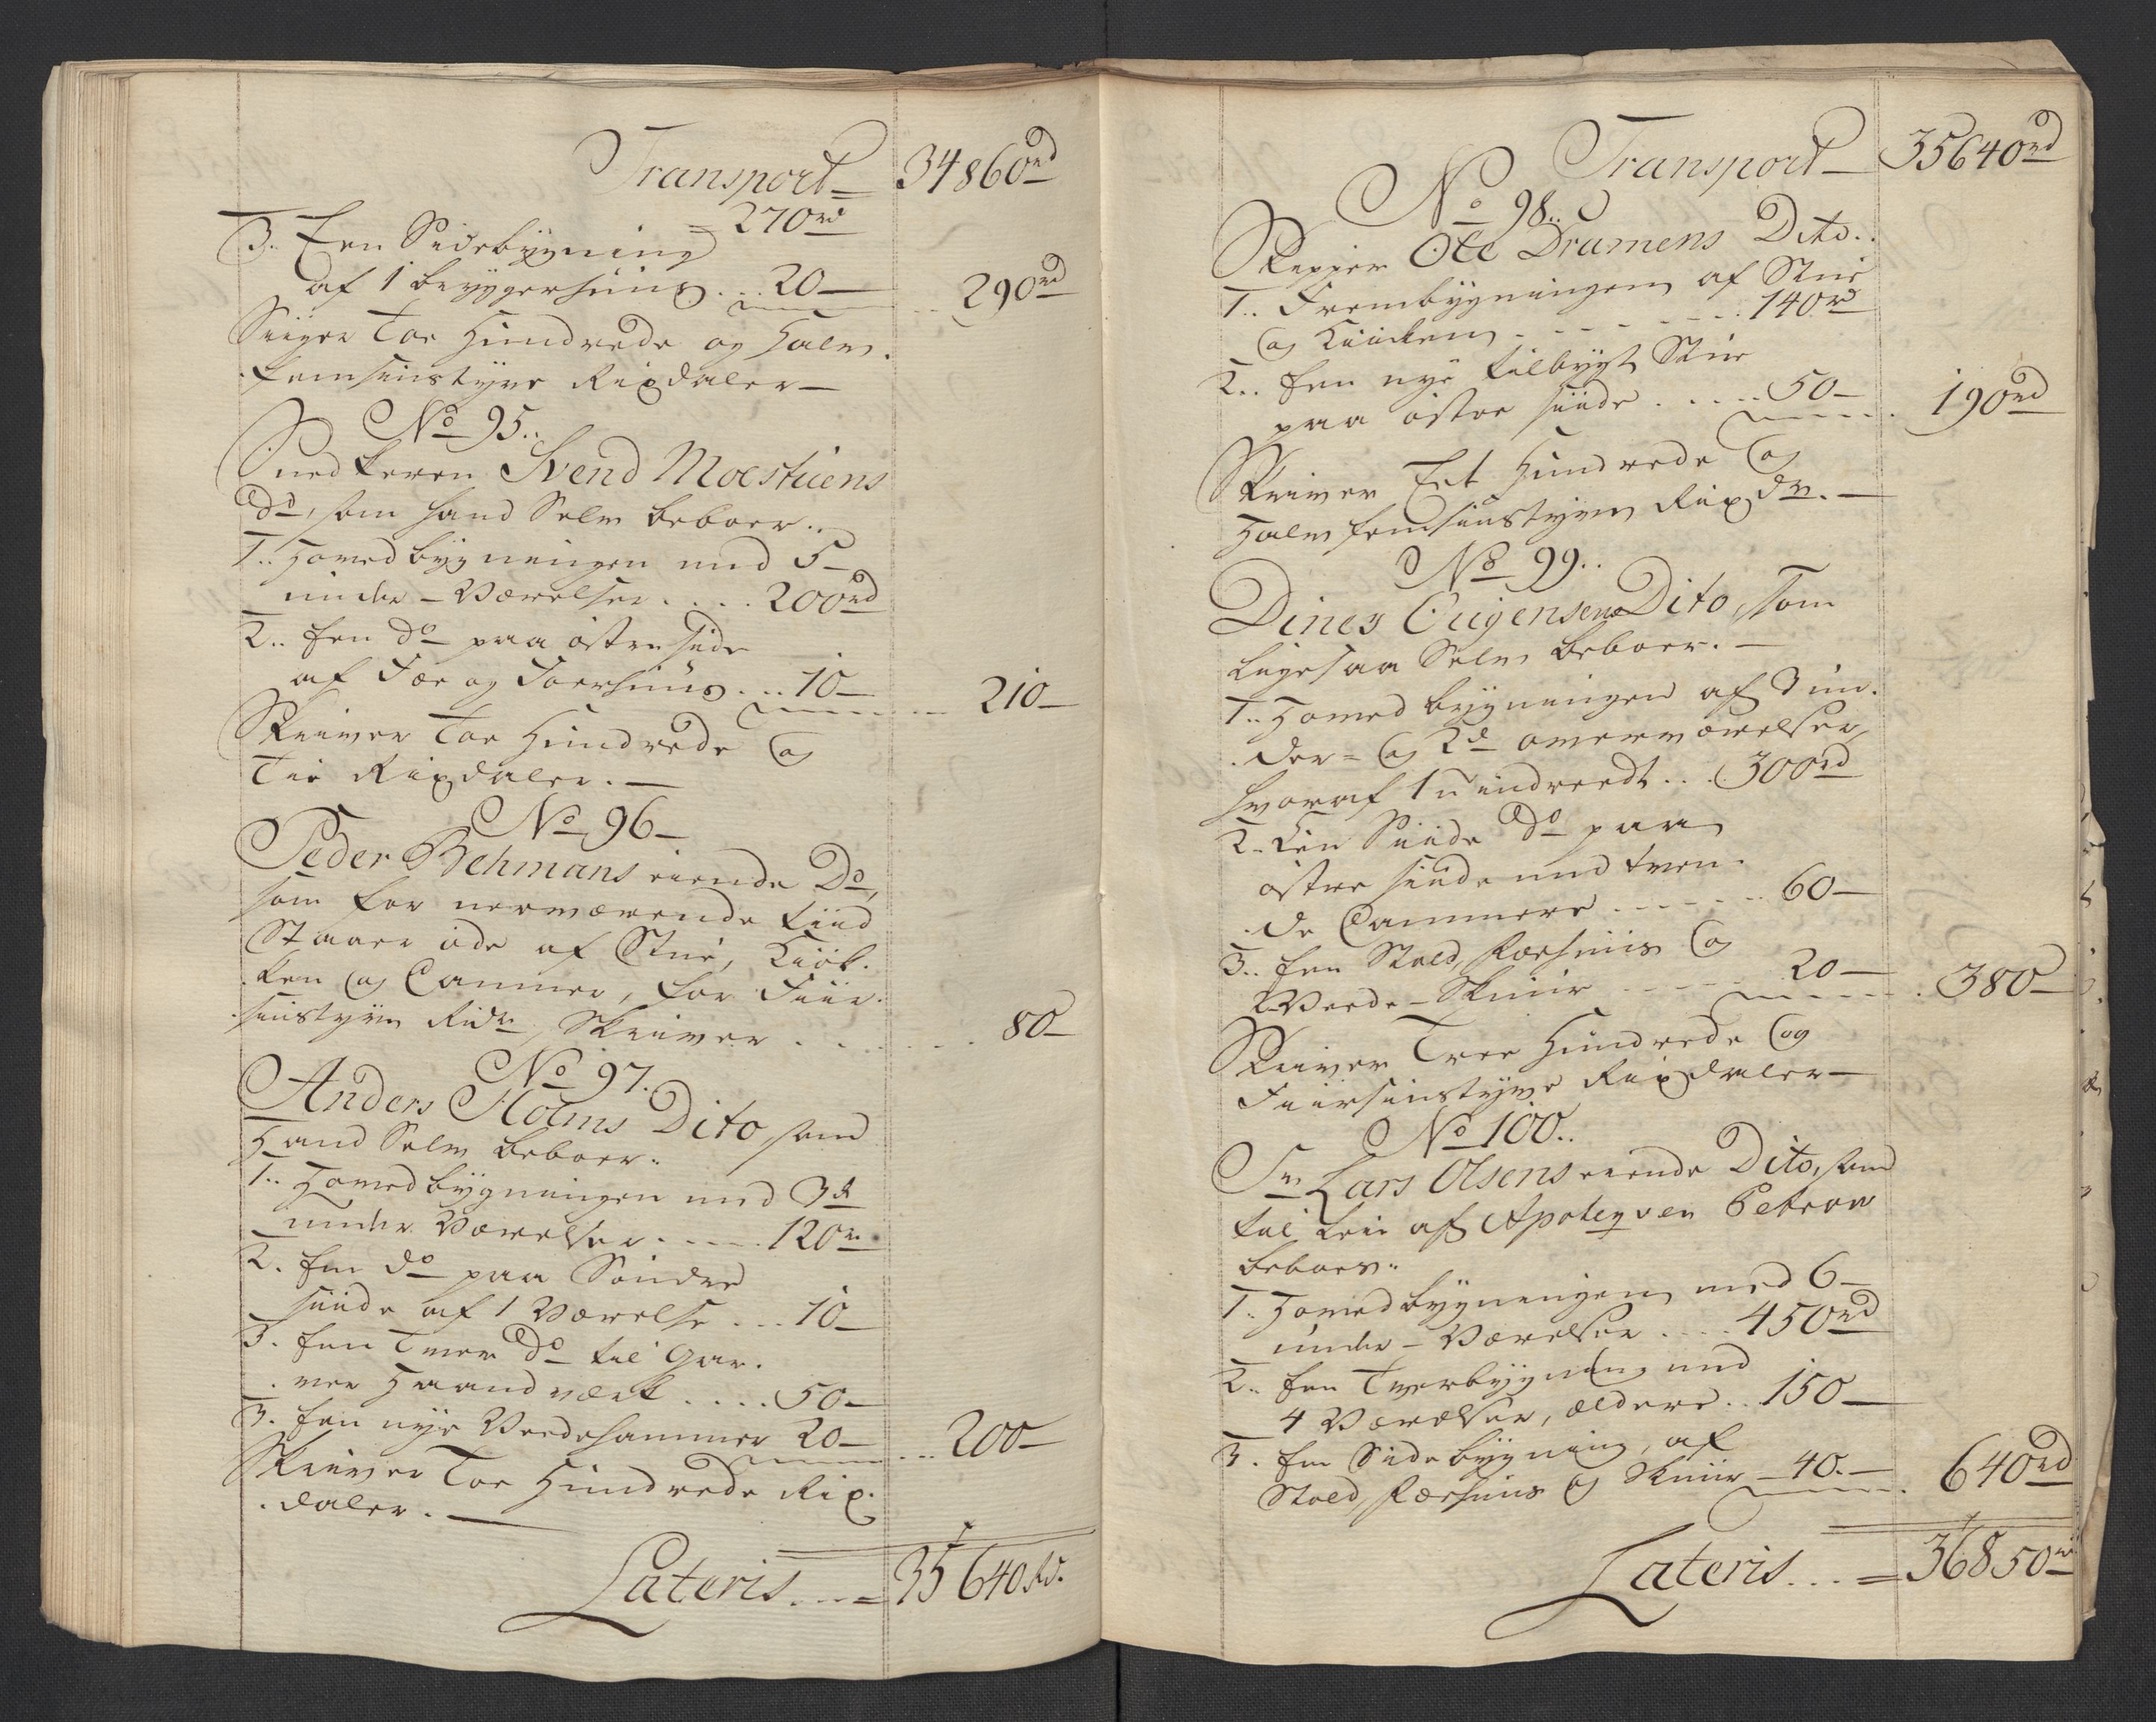 Transport = 34860rd
= 270rd
3. Een Sidebygning
af 1 bryggerhuus... 20 — .. 290rd
Siiger Toe Hundrede og Halv.
femsinstyve Rixdaler —
No 95..
Snedkeren Svend Moestuens
do, som hand Selv beboer..
1.. Hovedbygningen med 5 —
under-Værelser.... 200rd
2.. Een do paa østre side
af Fæe og Foerhuus... 10 — 210 —
Skriver Toe Hundrede og
Tie Rixdaler. —
No 96 —
Peder Behmans eiende Do,
som for nerværende tiid
Staaer øde af Stue, Kiök.
ken og Cammer, for Fiir.
sinstyve Rdr, Skriver . . . . . 80 —
No 97.
Anders Holms Dito, som
Hand Selv beboer..
1.. Hovedbygningen med 3de
under Værelser.... 120rd
2. Een do paa Søndre
siide af 1 Værelse... 10 —
3. Een Tver do til Gar.
ver Haandværk..... 50 —
3. Een nye Veedehammer 20 — ... 200 —
Skriver Toe Hundrede Rix.
daler. —
Lateris... = 35640rd.
Transport — 35640rd
No 98..
Skipper Ole Dramens Dito..
1.. Frembygningen af Stue
og Kiøcken....... 140rd
2.. Een nye tilbygt Stue
paa østre siide..... 50 — . 190rd
Skriver Eet Hundrede og
Halvfemsinstyve Rixdr. —
No 99..
Dines Eugensens Dito, som
ligesaa Selv beboer. —
1.. Hovedbygningen af 3 un.
der- og 2de overværelser,
hvoraf 1 uindreedt... 300rd
2.. Een Siide do paa
østre siide med tven.
de Cammere....... 60 —
3.. Een Stald, Foerhuus og
Veede-Skuur..... 20 — . 380 —
Skriver Tree Hundrede og
Fiirsinstyve Rixdaler —
No 100..
Sr Lars Olsens eiende Dito, som
til leie af Apoteqven Petrow
beboes..
1. Hovedbygningen med 6 —
under-Værelser.... 450rd
2.. Een Tverbygning med
4 Værelser, ældere.. 150 —
3. Een Sidebygning, af
Stald, Foerhuus og Skuur — 40. — . 640rd
Lateris... = 36850rd